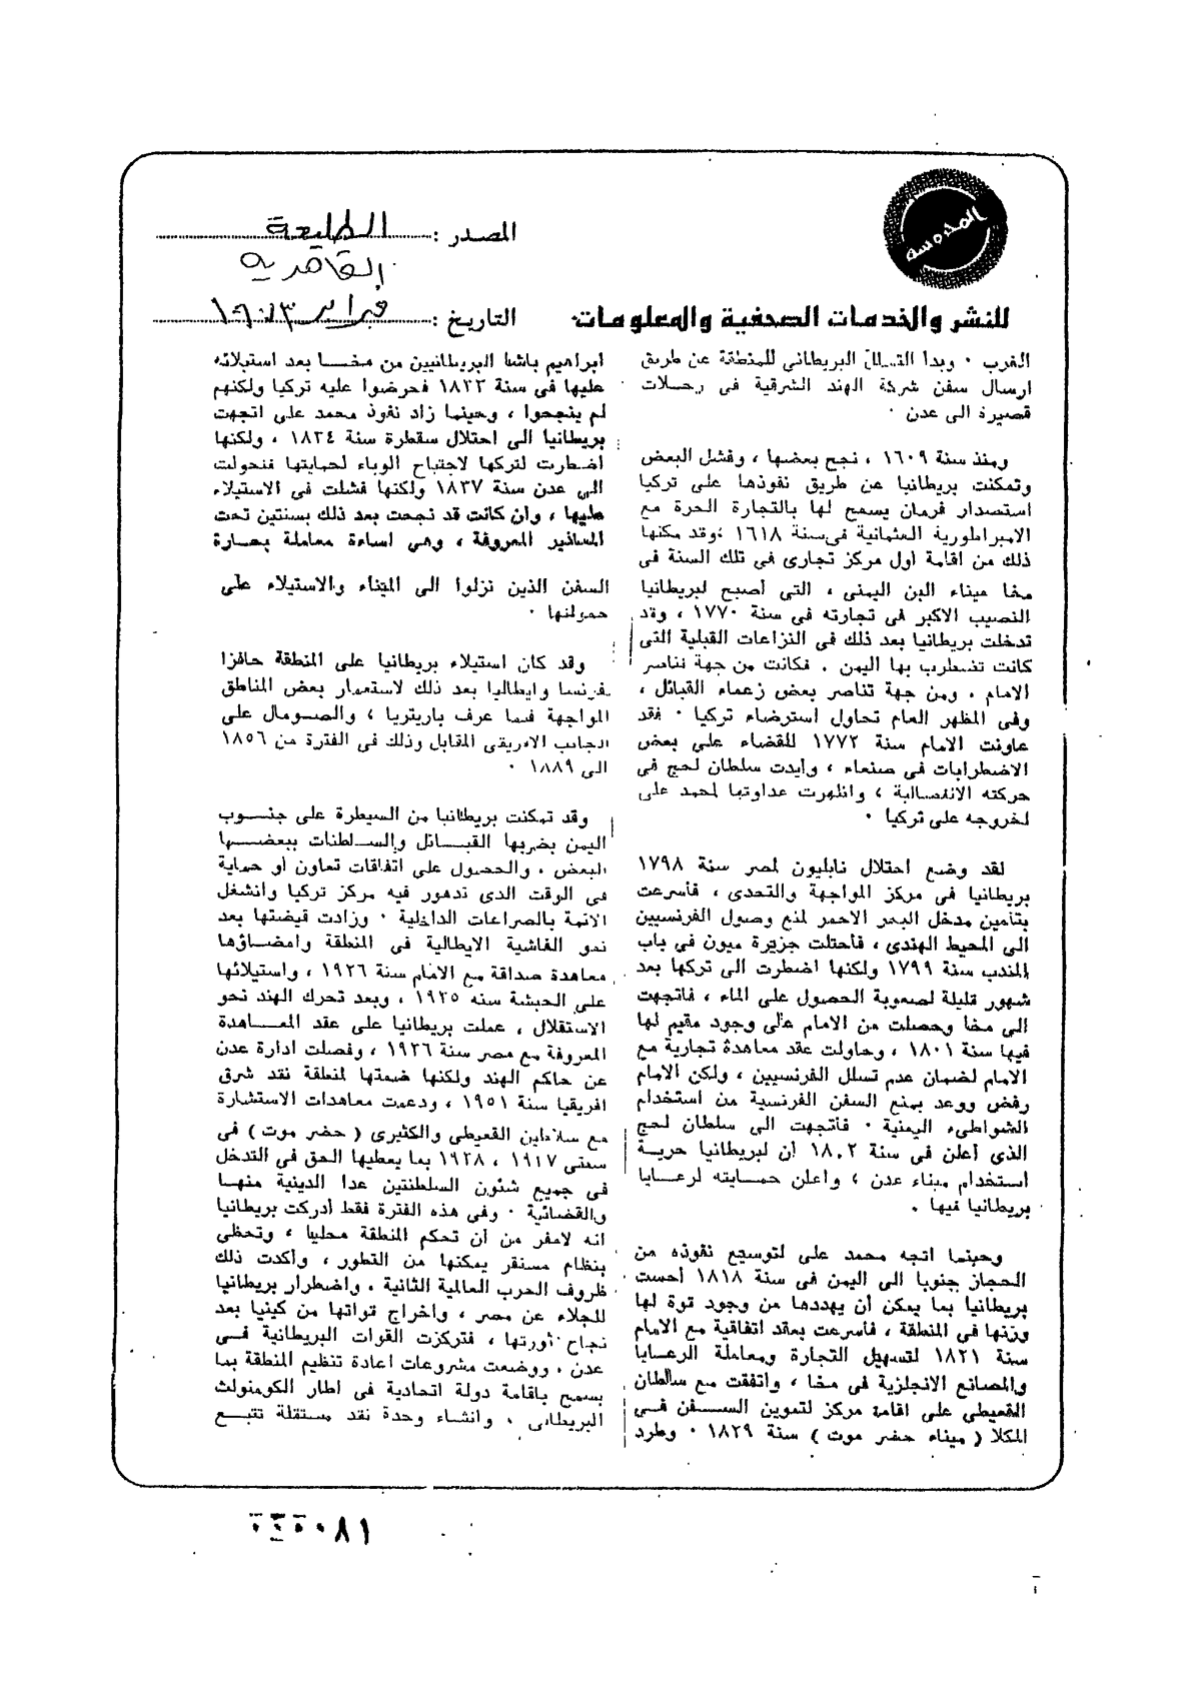 المصدر : الطليعة
القاهرية
للنشر والخدمات الصحفية والمعلومات
التاريخ : فبراير ١٩٧٣
الغرب ٠ وبدأ التسلل البريطاني للمنطقة عن طريق
ارسال سفن شركة الهند الشرقية فى رحلات
قصيرة الى عدن ٠
ومنذ سنة ١٦٠٩ ، نجح بعضها ، وفشل البعض
وتمكنت بريطانيا عن طريق نفوذها على تركيا
استصدار فرمان يسمح لها بالتجارة الحرة مع
الامبراطورية العثمانية فى سنة ١٦١٨ ؛وقد مكنها
ذلك من اقامة اول مركز تجارى فى تلك السنة فى
مخا ميناء البن اليمنى ، التى أصبح لبريطانيا
النصيب الاكبر فى تجارته فى سنة ١٧٧٠ ، وقد
تدخلت بريطانيا بعد ذلك فى النزاعات القبلية التى
كانت تضطرب بها اليمن . فكانت من جهة تناصر
الامام . ومن جهة تناصر بعض زعماء القبائل ،
وفى المظهر العام تحاول استرضاء تركيا ٠ فقد
عاونت الامام سنة ١٧٧٢ للقضاء على بعض
الاضطرابات فى صنعاء ، وأيدت سلطان لحج فى
حركته الانفصالية ، واظهرت عداوتها لمحمد على
لخروجه على تركيا ٠
لقد وضع احتلال نابليون لمصر سنة ١٧٩٨
بريطانيا فى مركز المواجهة والتحدى ، فأسرعت
بتأمين مدخل البحر الاحمر لمنع وصول الفرنسيين
الى المحيط الهندى ، فأحتلت جزيرة ميون في باب
المندب سنة ١٧٩٩ ولكنها اضطرت الى تركها بعد
شهور قليلة لصعوبة الحصول على الماء ، فاتجهت
الى مخا وحصلت من الامام على وجود مقيم لها
فيها سنة ١٨٠١ ، وحاولت عقد معاهدة تجارية مع
الامام لضمان عدم تسلل الفرنسيين ، ولكن الامام
رفض ووعد بمنع السفن الفرنسية من استخدام
الشواطىء اليمنية ٠ فأتجهت الى سلطان لحج
الذى أعلن فى سنة ١٨٠٢ أن لبريطانيا حرية
استخدام ميناء عدن ؛ واعلن حمايته لرعايا
بريطانيا فيها .
وحينما اتجه محمد على لتوسيع نفوذه من
الحجاز جنوبا الى اليمن فى سنة ١٨١٨ أحست
بريطانيا بما يمكن أن يهددها من وجود قوة لها
وزنها فى المنطقة ، فأسرعت بعقد اتفاقية مع الامام
سنة ١٨٢١ لتسهيل التجارة ومعاملة الرعايا
والمصانع الانجلزية فى مخا ، واتفقت مع سلطان
القعيطي على اقامة مركز لتموين السفن فى
المكلا ( ميناء حضر موت ) سنة ١٨٢٩ ٠ وطرد
ابراهيم باشا البريطانيين من مخا بعد استيلائه
عليها فى سنة ١٨٣٣ فحرضوا عليه تركيا ولكنهم
لم ينجحوا ، وحينما زاد نفوذ محمد على اتجهت
بريطانيا الى احتلال سقطرة سنة ١٨٣٤ ، ولكنها
اضطرت لتركها لاجتباح الوباء لحمايتها فتحولت
الى عدن سنة ١٨٣٧ ولكنها فشلت فى الاستيلاء
عليها ، وان كانت قد نجحت بعد ذلك بسنتين تحت
المعاذير المعروفة ، وهى اساءة معاملة بحارة
السفن الذين نزلوا الى الميناء والاستيلاء على
حمولتها ٠
وقد كان استيلاء بريطانيا على المنطقة حافزا
لفرنسا وايطاليا بعد ذلك لاستعمار بعض المناطق
المواجهة فيما عرف باريتريا ، والصومال على
الجانب الافريقى المقابل وذلك فى الفترة من ١٨٥٦
الى ١٨٨٩ ٠
وقد تمكنت بريطانيا من السيطرة على جنوب
اليمن بضربها القبائل والسلطنات ببعضها
البعض . والحصول على اتفاقات تعاون أو حماية
فى الوقت الذى تدهور فيه مركز تركيا وانشغل
الائمة بالصراعات الداخلية ٠ وزادت قبضتها بعد
نمو الفاشية الايطالية فى المنطقة وامضاؤها
معاهدة صداقة مع الامام سنة ١٩٢٦ ، واستيلائها
على الحبشة سنه ١٩٣٥ . وبعد تحرك الهند نحو
الاستقلال . عملت بريطانيا على عقد المعاهدة
المعروفة مع مصر سنة ١٩٣٦ ، وفصلت ادارة عدن
عن حاكم الهند ولكنها ضمتها لمنطقة نقد شرق
افريقيا سنة ١٩٥١ ، ودعمت معاهدات الاستشارة
مع سلاطين القعيطى والكثيرى ( حضر موت ) فى
سنتى ١٩٣٧ ، ١٩٣٨ بما يعطيها الحق فى التدخل
فى جميع شئون السلطنتين عدا الدينية منها
والقضائية ٠ وفى هذه الفترة فقط أدركت بريطانيا
انه لامفر من أن تحكم المنطقة محليا ، وتحظى
بنظام مستقر يمكنها من التطور ، وأكدت ذلك
ظروف الحرب العالمية الثانية . واضطرار بريطانيا
للجلاء عن مصر ، واخراج قواتها من كينيا بعد
نجاح ثورتها ، فتركزت القوات البريطانية فى
عدن . ووضعت مشروعات اعادة تنظيم المنطقة بما
يسمح باقامة دولة اتحادية فى اطار الكومنولث
البريطانى . وانشاء وحدة نقد مستقلة تتبع